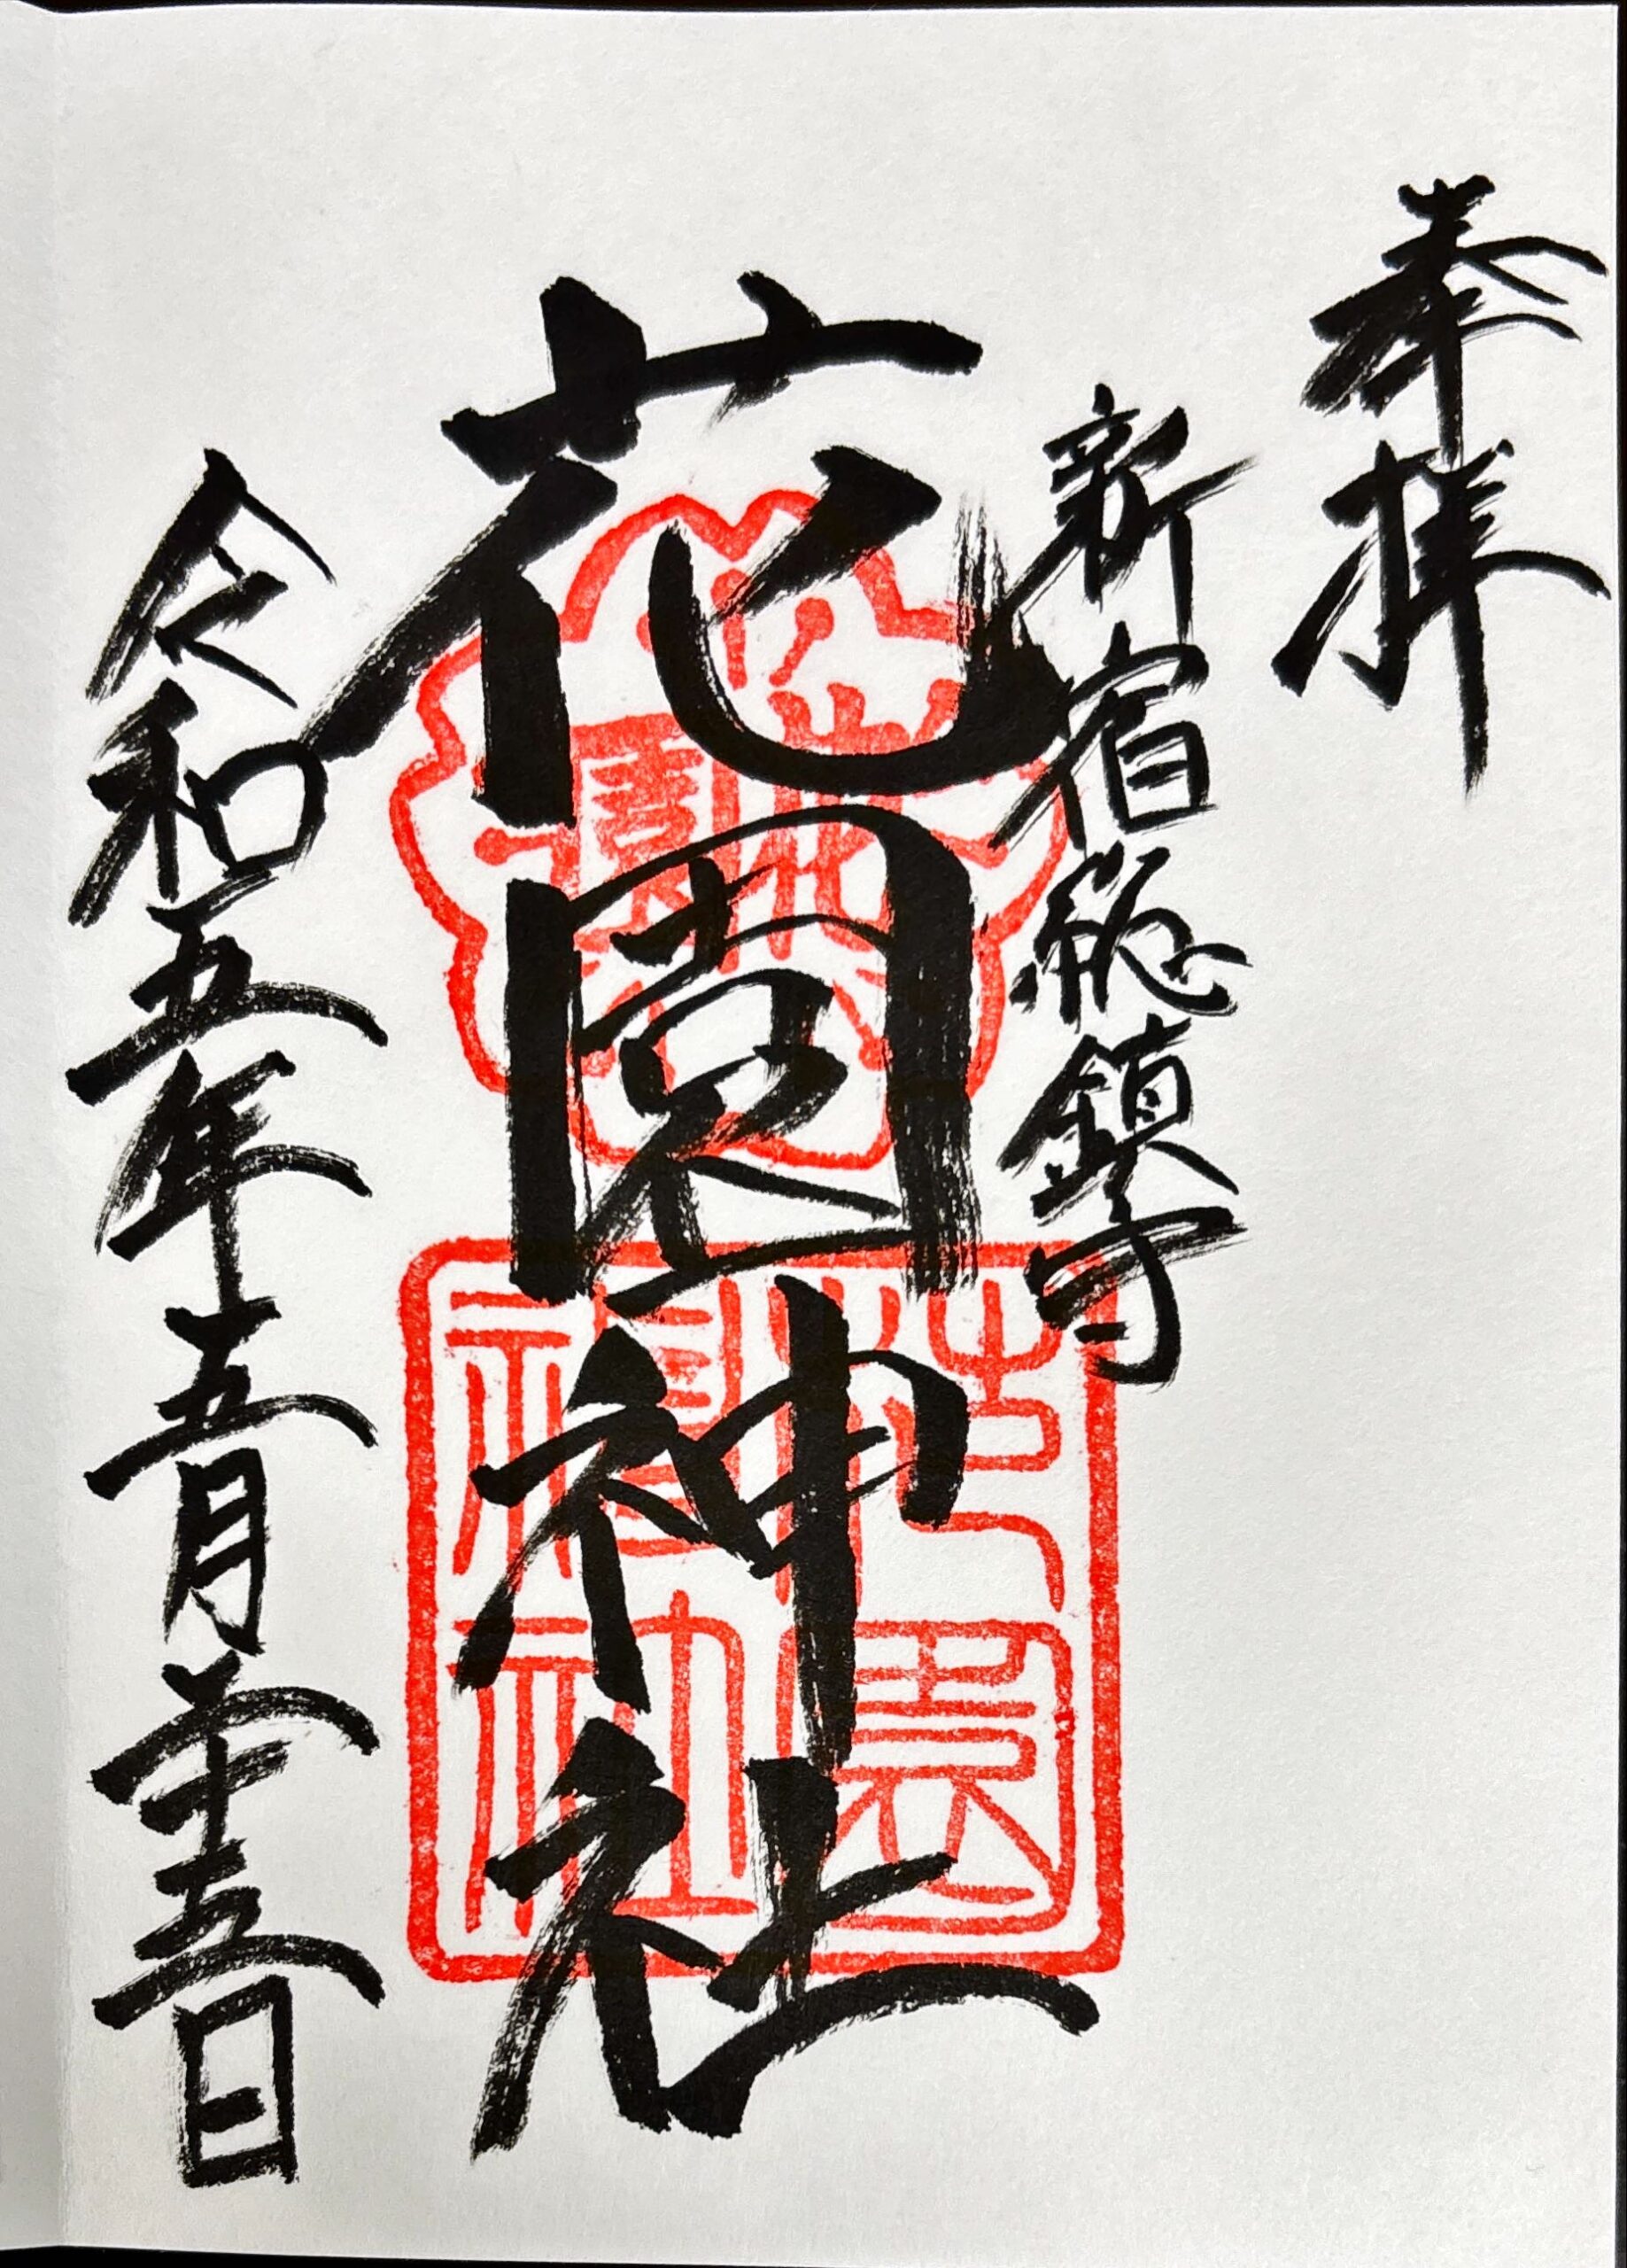 奉拝
新宿総鎮守
花園神社
令和五年五月二十五日
花園
神社